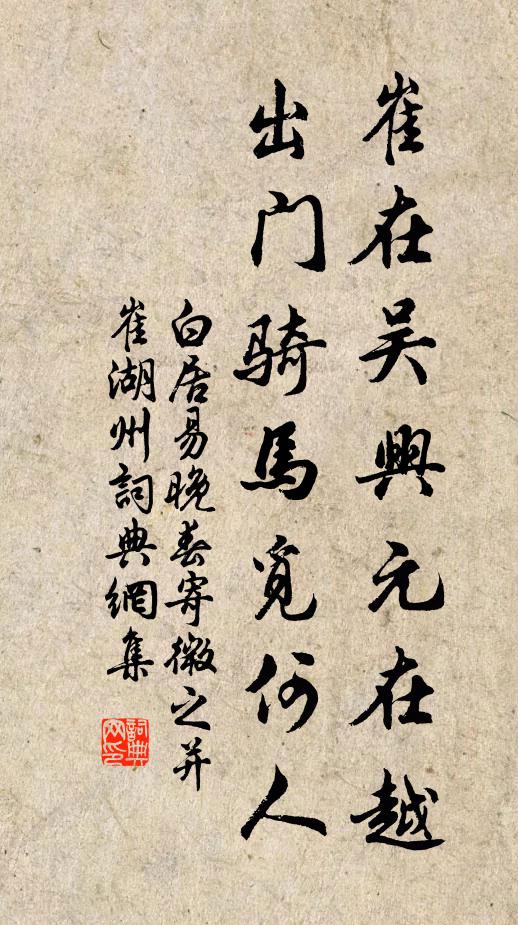 崔在吳興元在越
出門騎馬覓何人
白居易晚春寄微之并
崔湖州詞典網集
詞典網印